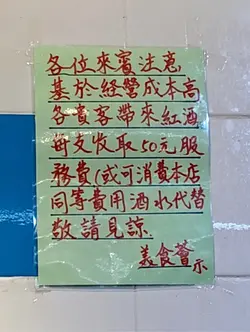 各位來賓注意
基於經營成本高
各貴客帶來紅酒
每支收取50元服
務費(或可消費本店
同等費用酒水代替
敬請見諒
美食薈示